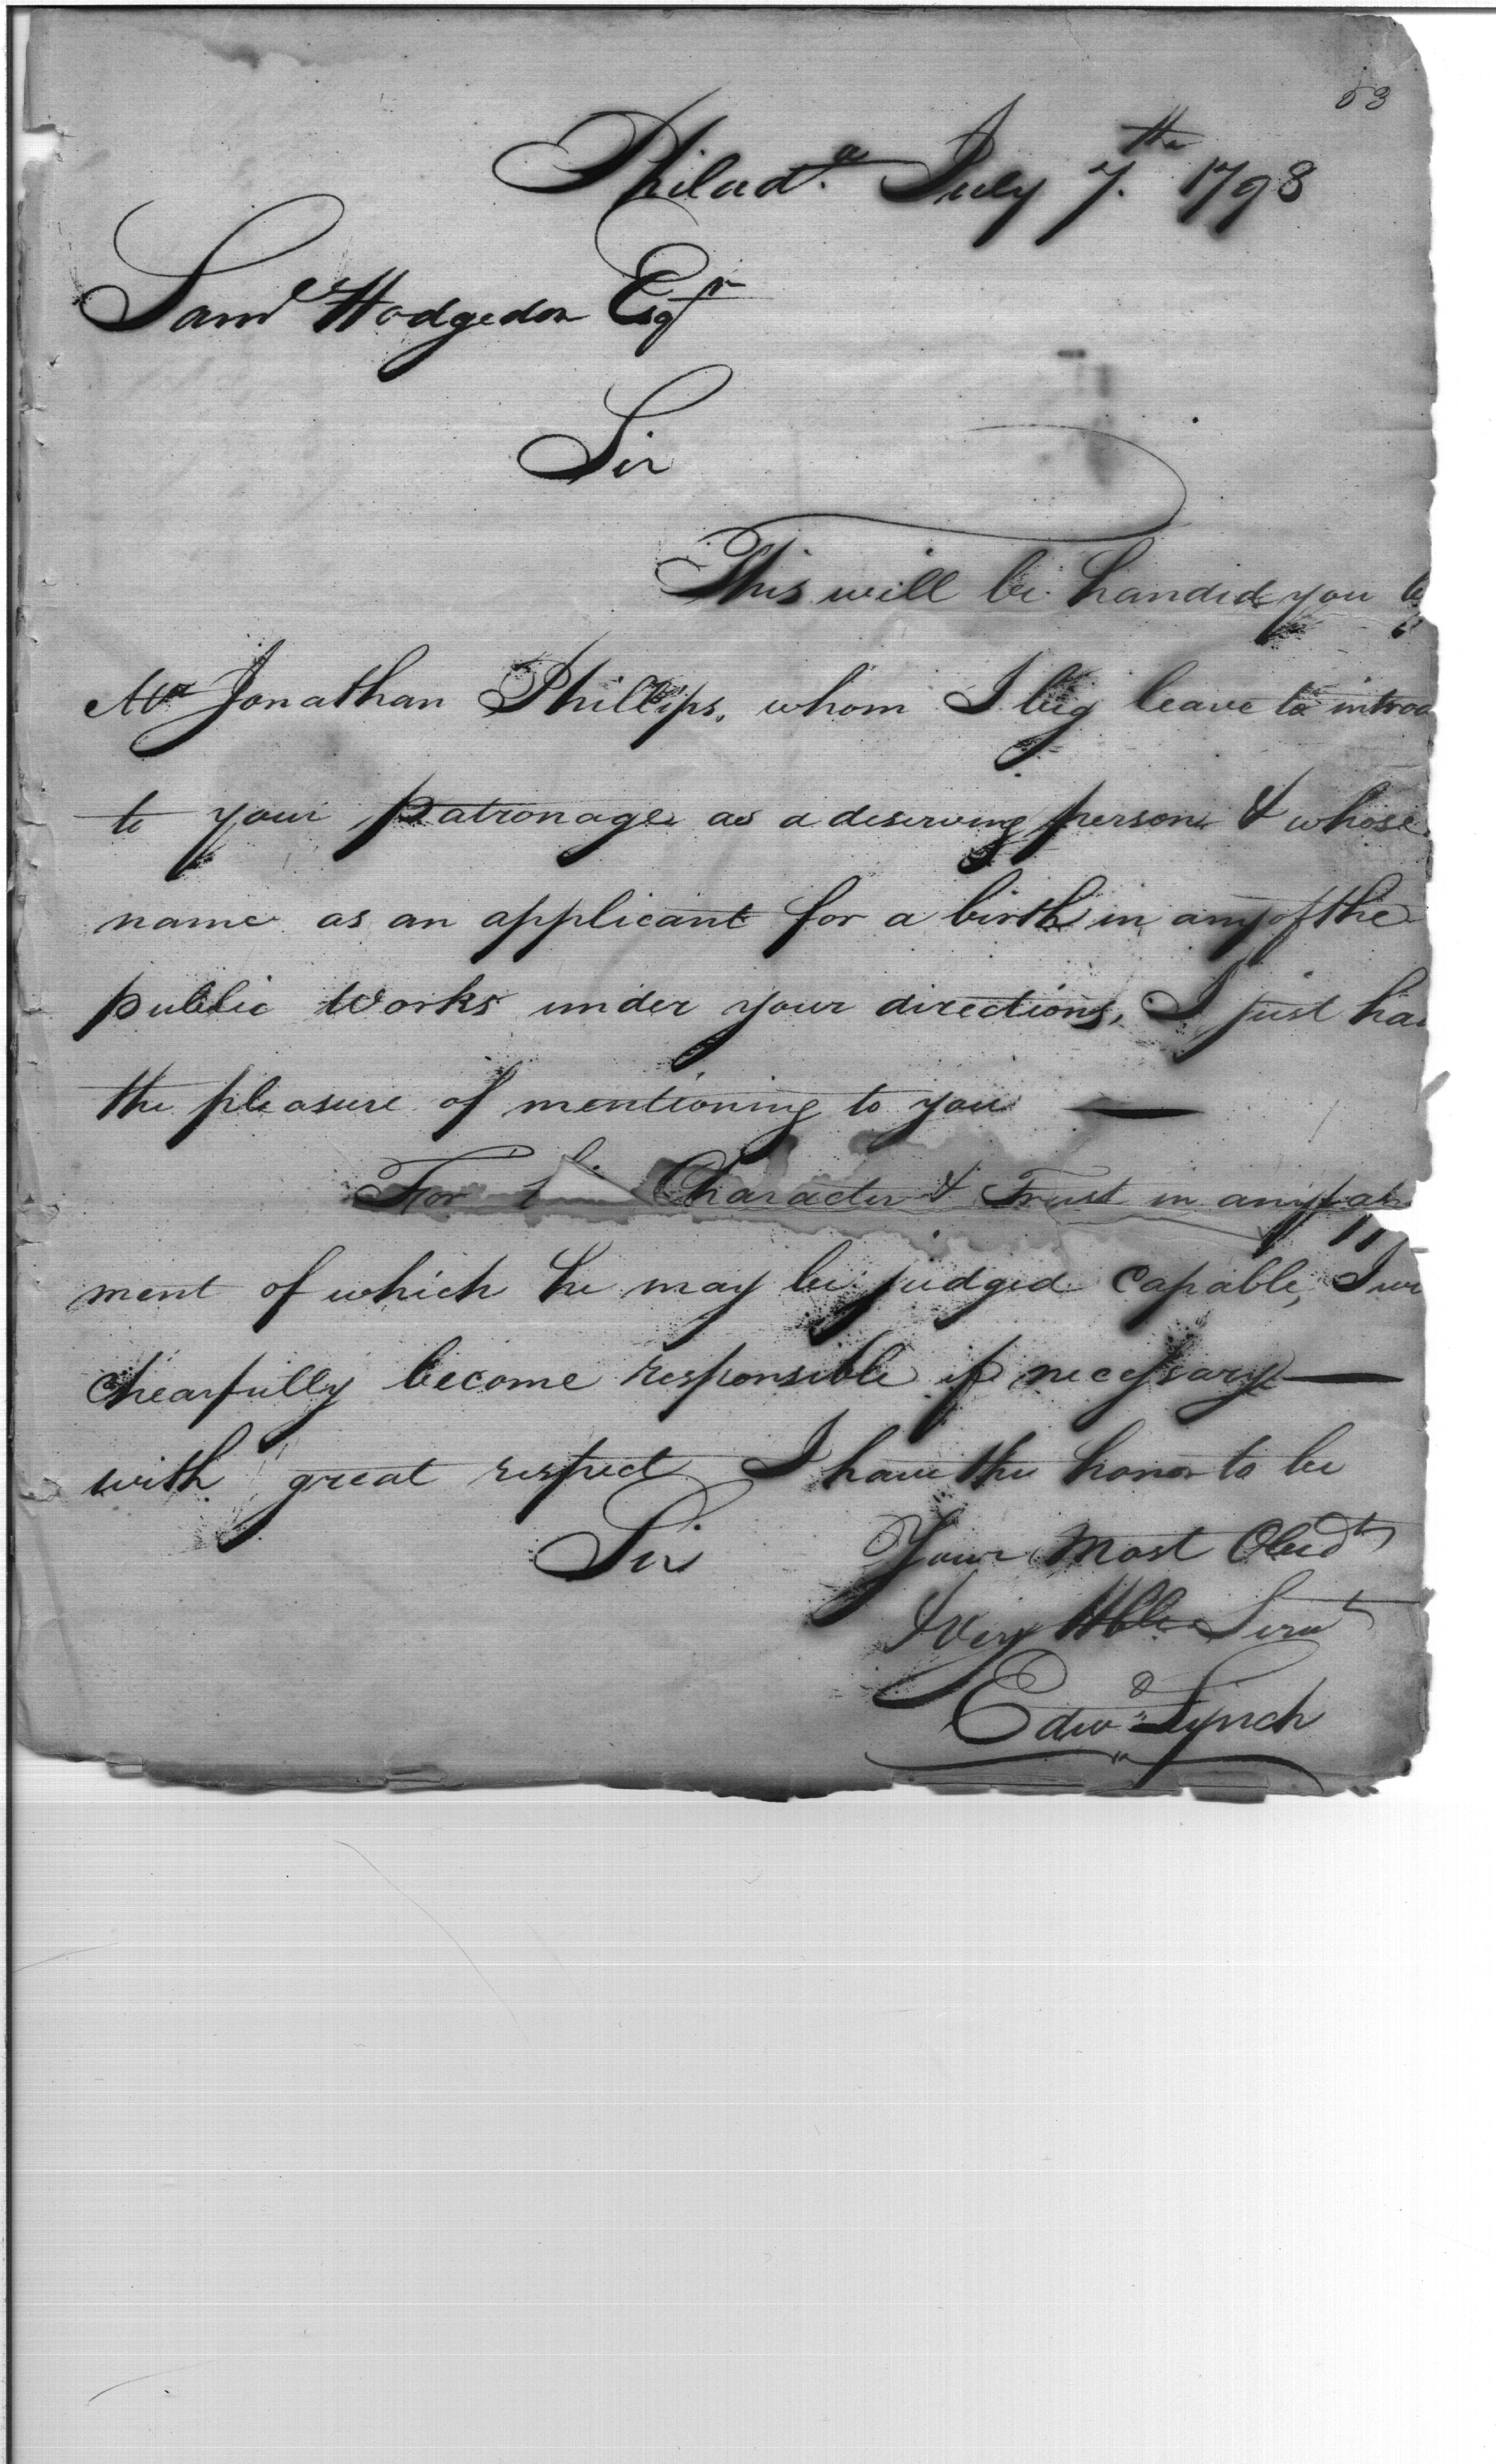 83
Philad.a July 7.th 1798
Saml Hodgedon Esqr
Sir
This will be handed you
Mr Jonathan Phillips, whom I beg leave to introd
to your patronage as a deserving person & whose
name as an applicant for a birth in any of the
public Works under your directions, I just ha
the pleasure of mentioning to you —
For Character & Trust in any
ment of which he may be judged capable, I
chearfully become responsible if necessary —
with great respect I have the honor to be
Sir Your Most Obedt
& Very Hble Servt
Edwd Lynch